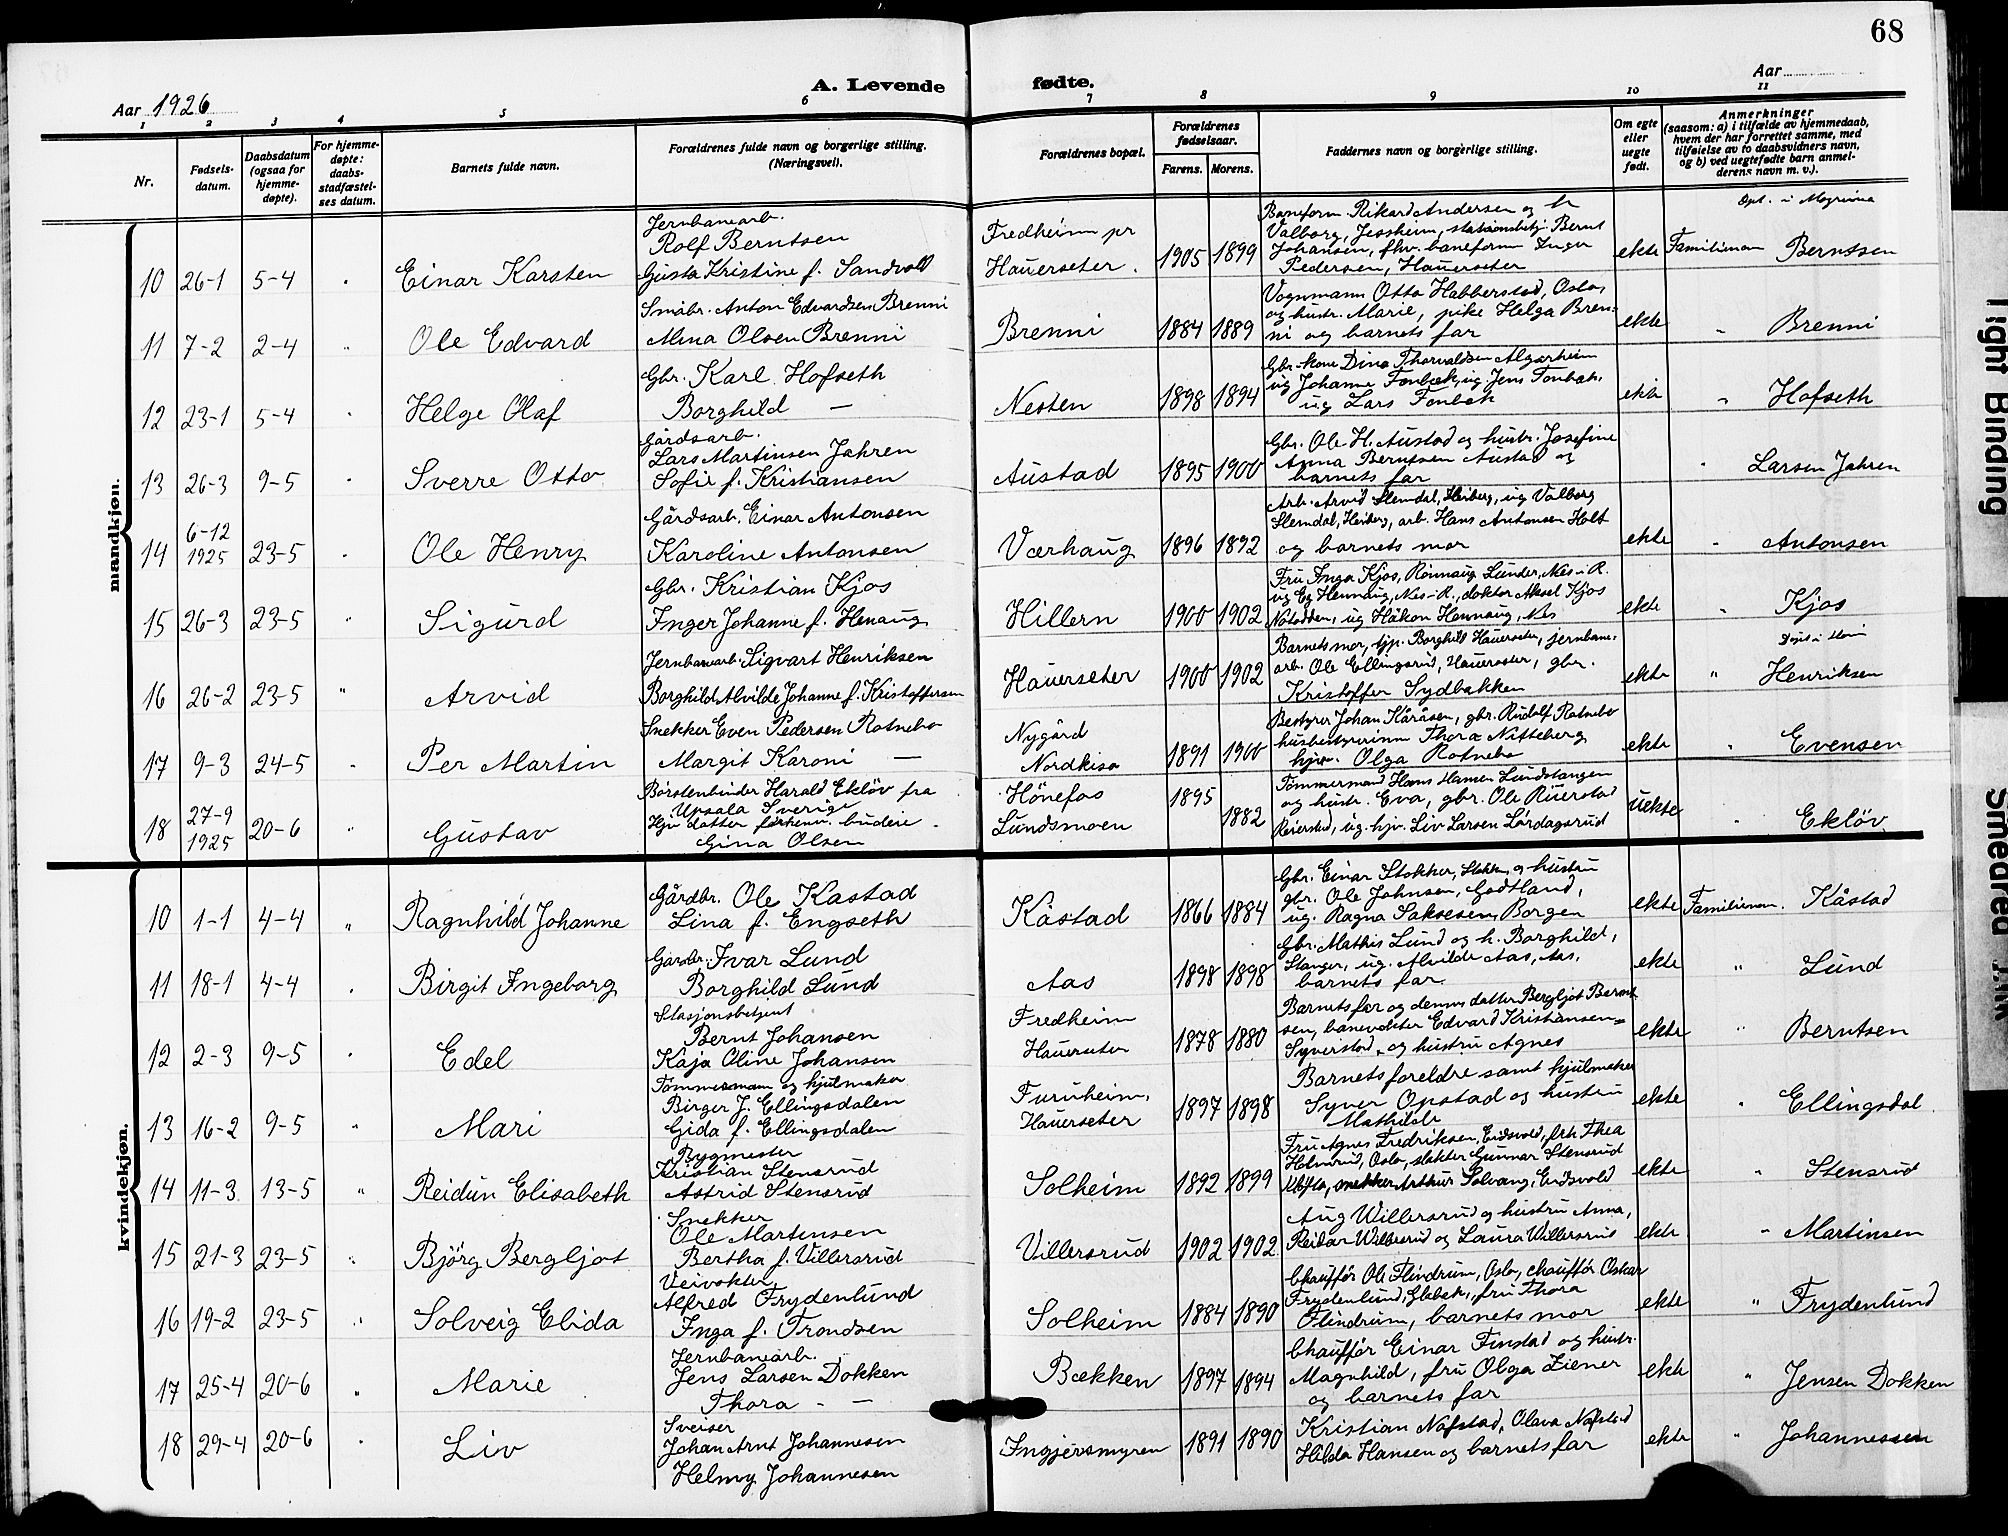 68
A. Levende fødte.
Aar 1926
Aar
1 2 3 4 5 6 7 8 9 10 11
Nr.
Fødsels-datum.
Daabsdatum (ogsaa for hjemme-døpte).
For hjemme-døpte: daabs-stadfæstel-ses datum.
Barnets fulde navn.
Forældrenes fulde navn og borgerlige stilling. (Næringsvei).
Forældrenes bopæl.
Forældrenes fødselsaar.
Farens. Morens.
Faddernes navn og borgerlige stilling.
Om egte eller uegte født.
Anmerkninger
(saasom: a) i tilfælde av hjemmedaab, hvem der har forrettet samme, med tilføielse av to daabsvidners navn, og b) ved uegtefødte barn anmel-derens navn m. v.).
mandkjøn.
10 26-1 5-4 Einar Karsten
Jernbanearb. Rolf Berntsen
Gusta Kristine f. Sandvold
Fredheim pr Hauerseter. 1905 1899
Baneform. Rikard Andersen og h
Valborg, Jessheim, stationsbetj. Bernt
Johansen, fhv. baneform Inger
Pedersen, Hauerseter
ekte Familienavn Berntsen
11 7-2 2-4 Ole Edvard
Småbr. Anton Edvardsen Brenni
Mina Olsen Brenni
Brenni 1884 1889
Vognmann Otto Habberstad, Oslo,
og hustr. Marie, pike Helga Bren-
ni og barnets far
ekte " Brenni
12 23-1 5-4 Helge Olaf
Gbr. Karl Hofseth
Borghild —
Nesten 1898 1894
Gbr.-kone Dina Thorvaldsen Algarheim
ug Johanne Fonbæk, ug Jens Fonbæk,
ug Lars Fonbæk
ekte " Hofseth
13 26-3 9-5 Sverre Otto
Gårdsarb. Lars Martinsen Jahren
Sofie f. Kristiansen
Austad 1895 1900
Gbr. Ole H. Austad og hustr. Josefine
Anna Berntsen Austad og
barnets far
" Larsen Jahren
14 6-12 1925 23-5 Ole Henry
Gårdsarb. Einar Antonsen
Karoline Antonsen
Værhaug 1896 1892
Arb. Arvid Slemdal, Heiberg, ug Valborg
Slemdal, Heiberg, arb. Hans Antonsen Holt
og barnets mor
ekte " Antonsen
15 26-3 23-5 Sigurd
Gbr. Kristian Kjos
Inger Johanne f. Henaug
Hillern 1900 1902
Fru Inga Kjos, Rønnaug Lunder, Nes-i-R.
ug Eg Hennaug, Nes-i-R., doktor Aksel Kjos
Notodden, ug Håkon Hennaug, Nes
ekte " Kjos
16 26-2 23-5 " Arvid
Jernbanearb. Sigvart Henriksen
Borghild Alvilde Johanne f. Kristoffersen
Hauerseter 1900 1902
Barnets mor, tjp. Borghild Hauerseter, jernbane-
arb. Ole Ellingsrud, Hauerseter, gbr.
Kristoffer Sydbakken
ekte " Henriksen
17 9-3 24-5 Per Martin
Snekker Even Pedersen Rotnebo
Margit Karoni —
Nygård Nordkisa 1891 1900
Bestyrer Johan Kåråsen, gbr. Rudolf Rotnebo
husbestyrerinn Thora Nitteberg
hjv. Olga Rotnebo
ekte " Evensen
18 27-9 1925 20-6 " Gustav
Børstenbinder Harald Ekløv fra
Upsala Sverige
Hjv datter forhenv. budeie
Gina Olsen
Hønefos 1895
Lundsmoen 1882
Tømmermand Hans Hansen Lundstangen
og hustr. Eva, gbr. Ole Ruerstad
Reierstad, ug. hjv. Liv Larsen Lørdagsrud
uekte " Ekløv
kvindekjøn.
10 1-1 4-4 " Ragnhild Johanne
Gårdbr. Ole Kastad
Lina f. Engseth
Kåstad 1866 1884
Gbr. Einar Stokker, Stokker og hustru
gbr. Ole Johnsen, Godtland,
ug. Ragna Saksesen, Borgen
ekte Familienavn. Kåstad
11 18-1 4-4 Birgit Ingeborg
Gårdbr. Ivar Lund
Borghild Lund
Aas 1898 1898
Gbr. Mathis Lund og h. Borghild,
Stanger, ug. Alvilde Aas, Aas,
barnets far
ekte " Lund
12 2-3 9-5 Edel
Stasjonsbetjent
Bernt Johansen
Kaja Oline Johansen
Fredheim Hauerseter 1878 1880
Barnets far og dennes datter Bergljot Bernt-
sen, banevokter Edvard Kristiansen
Syverstad, og hustru Agnes
ekte " Berntsen
13 16-2 9-5 " Mari
Tømmermann og hjulmaker
Birger J. Ellingsdalen
Gida f. Ellingsdalen
Furuheim, Hauerseter 1897 1898
Barnets foreldre samt hjulmaker
Syver Opstad og hustru
Mathilde
ekte " Ellingsdal
14 11-3 13-5 " Reidun Elisabeth
Bygmester
Kristian Stensrud
Astrid Stensrud
Solheim 1892 1899
Fru Agnes Fredriksen, Eidsvold, frk Thea
Holmsrud, Oslo, slakter Gunnar Stensrud
Kløfta, snekker Arthur Solvang, Eidsvold
ekte " Stensrud
15 21-3 23-5 " Bjørg Bergljot
Snekker
Ole Martinsen
Bertha f. Villersrud
Villersrud 1902 1902
Aug Willersrud og hustru Anna,
Reidar Willersrud og Laura Willersrud
ekte " Martinsen
16 19-2 23-5 " Solveig Elida
Veivokter,
Alfred Frydenlund
Inga f. Trondsen
Solheim 1884 1890
Chauffør Ole Flindrum, Oslo, chauffør Oskar
Frydenlund, Glebek, fru Thora
Flindrum, barnets mor
ekte " Frydenlund
17 25-4 20-6 " Marie
Jernbanearb.
Jens Larsen Dokken
Thora —
Bækken 1897 1894
Chauffør Einar Finstad og hustr.
Magnhild, fru Olga Ziener
og barnets far
ekte " Jensen Dokken
18 29-4 20-6 Liv
Sveiser
Johan Arnt Johannesen
Helmy Johannesen
Ingjersmyren 1891 1890
Kristian Nafstad, Olava Nafstad
Hilda Hansen og barnets far
ekte " Johannessen
Tight Binding
Smeared Ink